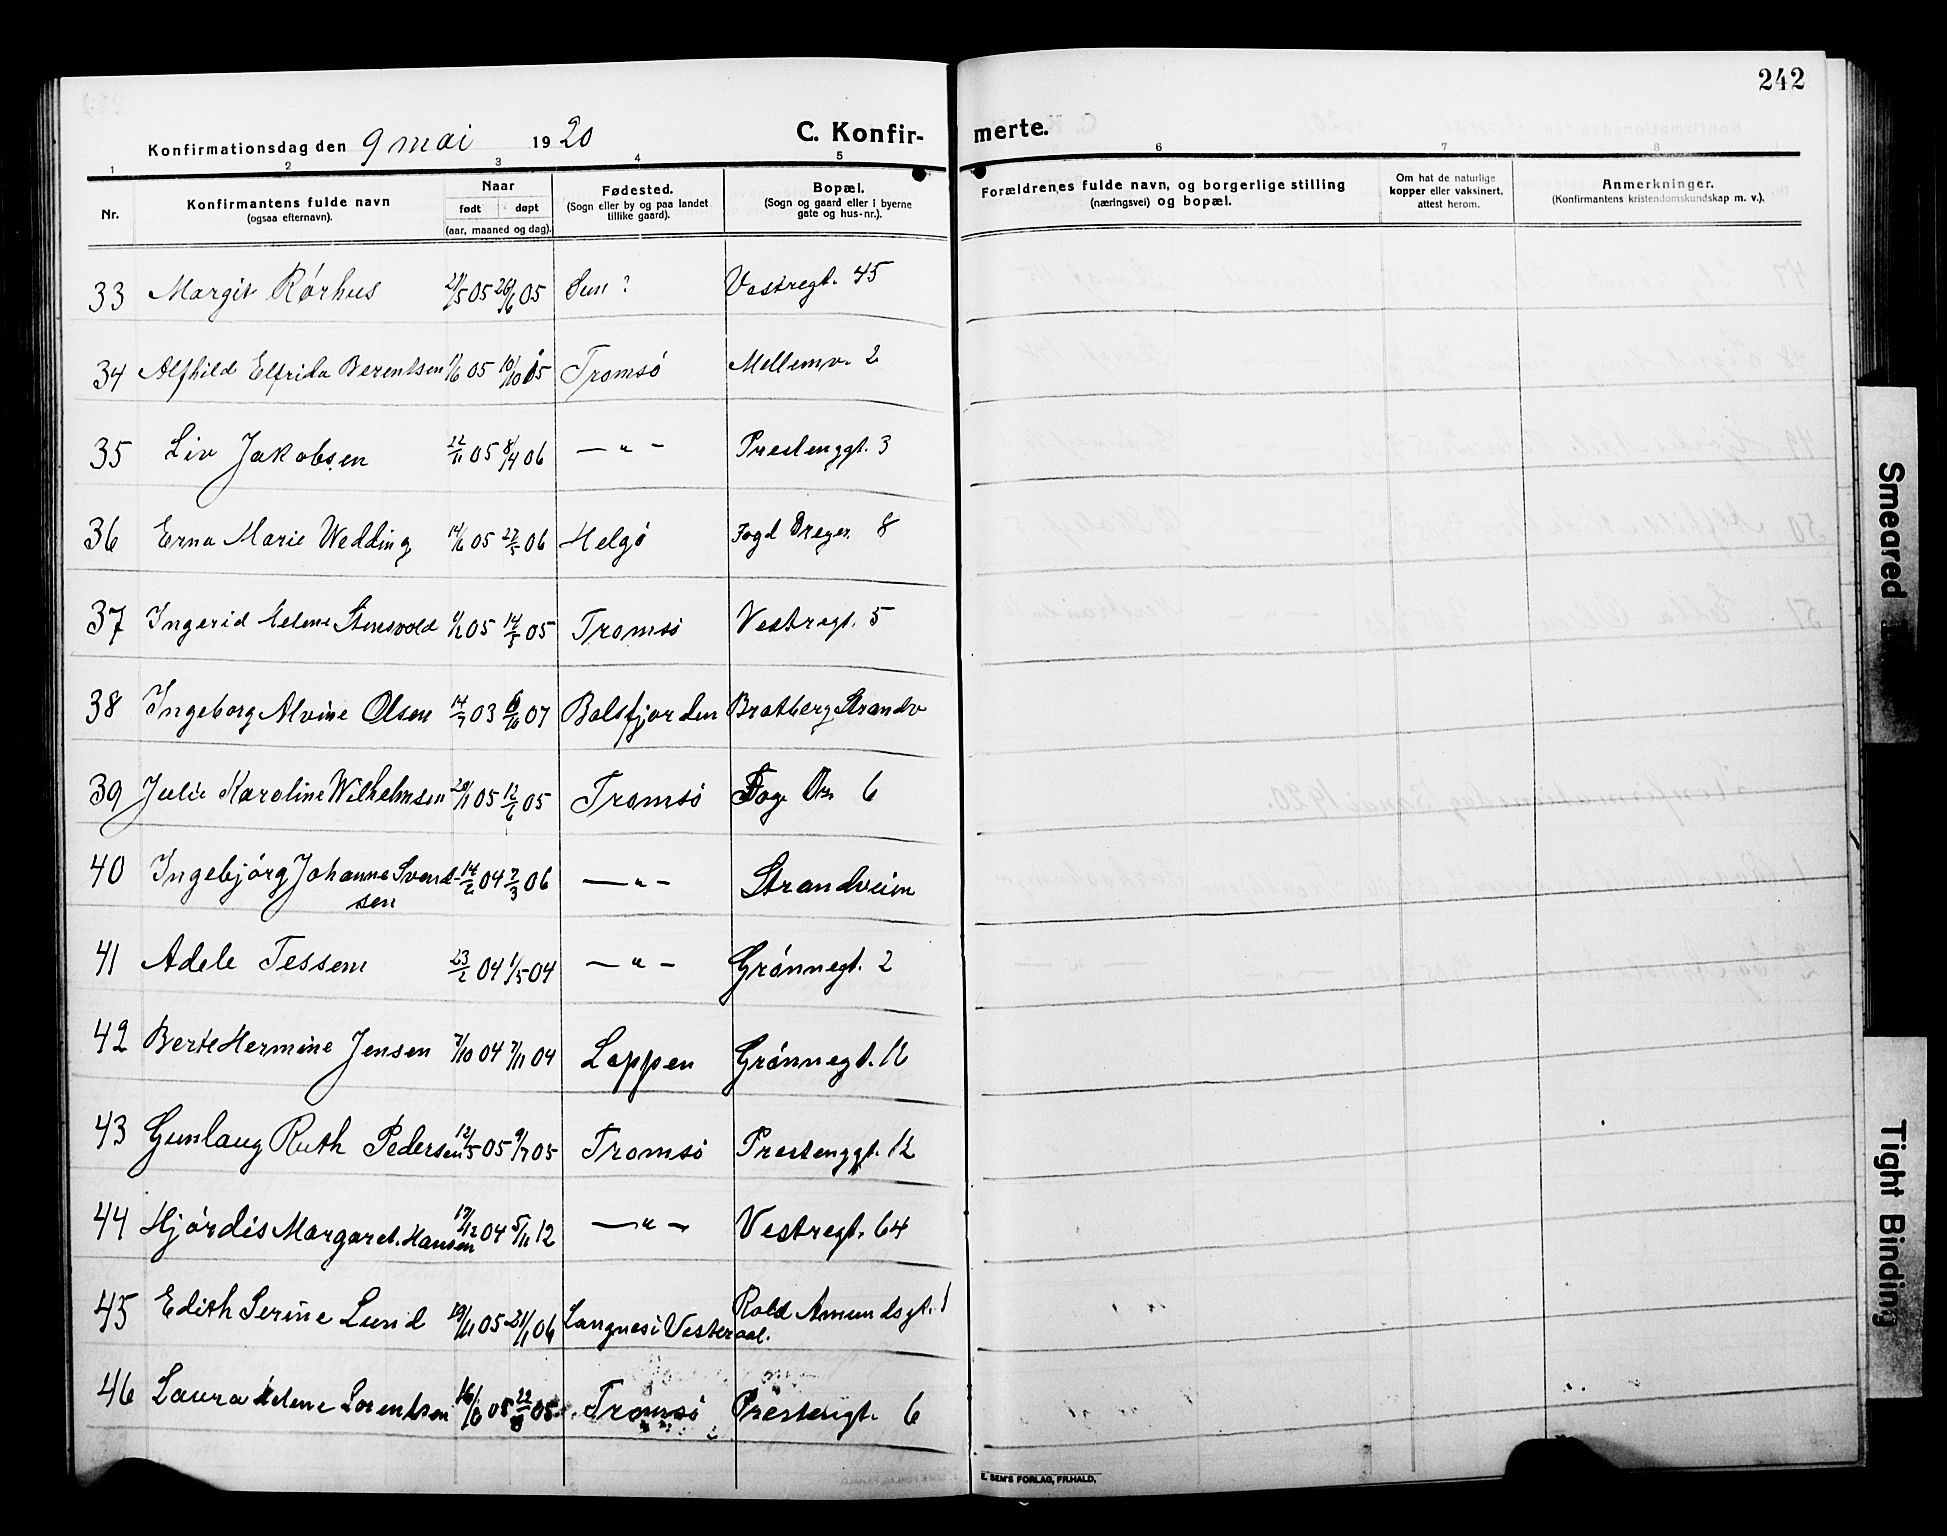 242
Konfirmationsdag den 9 mai 1920
C. Konfir-
merte.
1 2 3 4 5 6 7 8
Nr.
Konfirmantens fulde navn
(ogsaa efternavn).
Naar
født døpt
(aar, maaned og dag).
Fødested.
(Sogn eller by og paa landet
tillike gaard).
Bopæl.
(Sogn og gaard eller i byerne
gate og hus-nr.).
Forældrenes fulde navn, og borgerlige stilling
(næringsvei) og bopæl.
Om hat de naturlige
kopper eller vaksinert.
attest herom.
Anmerkninger.
(Konfirmantens kristendomskundskap m. v.).
33 Margit Rørhus 05 05 Vestregt. 45
34 Alfhild Elfrida Berentsen 05 10/10 05 Tromsø Mellemv. 2
35 Liv Jakobsen 22/11 05 8/4 06 — " — Prestenggt. 3
36 Erna Marie Wedding 14/6 05 27/5 06 Helgø Fogd Dreyer 8
37 Ingerid Helene Stensvold 05 14/5 05 Tromsø Vestregt. 5
38 Ingeborg Alvine Olsen 14/7 03 07 Balsfjorden Bratberg Strandv
39 Julie Karoline Wilhelmsen 05 12/6 05 Tromsø 6
40 Ingebjørg Johanne Svend-
sen 14/6 04 2/3 06 — " — Strandveien
41 Adele Tessem 23/2 04 1/5 04 — " — Grønnegt. 2
42 Berte Hermine Jensen 7/10 04 7/11 04 Loppen Grønnegt. 16
43 Gunlaug Ruth Pedersen 12/5 05 9/7 05 Tromsø Prestenggt. 12
44 Hjørdis Margaret. Hansen 04 5/11 12 — " — Vestregt. 64
45 Edith Serine Lund 05 06 Langnes i Vesteraal. Roald Amundsgt. 1
46 Laura Helene Lorentsen 05 05 Tromsø 6
E. SEM'S FORLAG, FR.HALD,
Smeared
Tight Binding